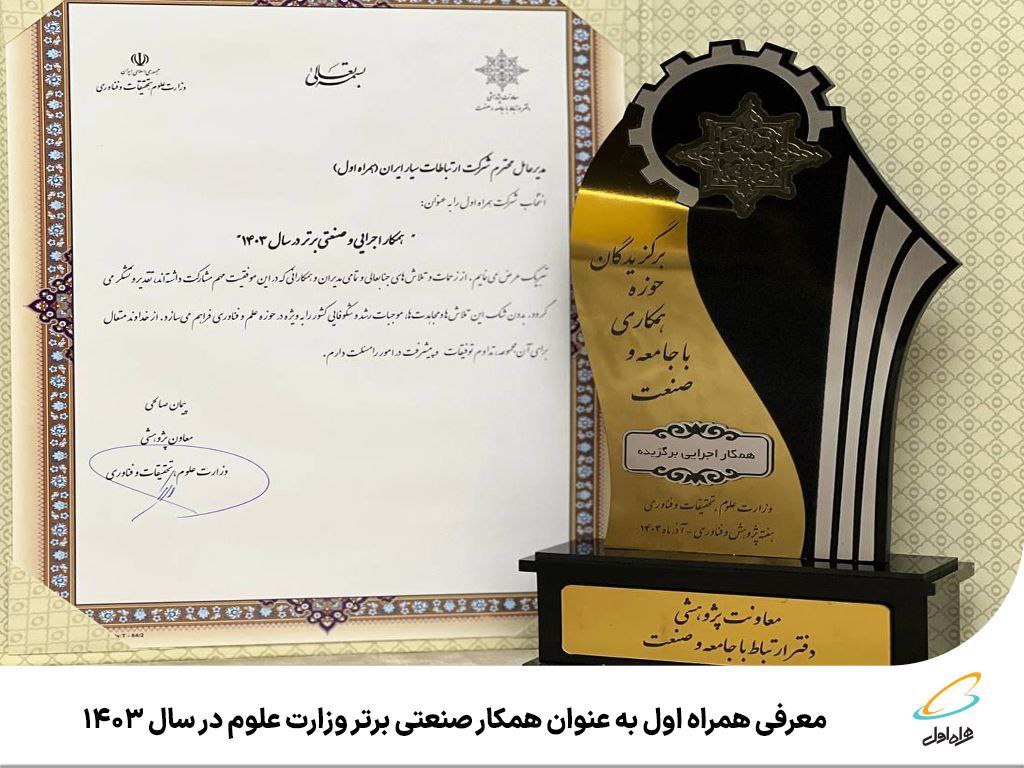 جمهوری اسلامی ایران
وزارت علوم، تحقیقات و فناوری
بسمه تعالی
معاونت پژوهشی
دفتر ارتباط با جامعه و صنعت
مدیرعامل محترم شرکت ارتباطات سیار ایران (همراه اول)
انتخاب شرکت همراه اول را به عنوان:
" همکار اجرایی و صنعتی برتر در سال ۱۴۰۳"
تبریک عرض می نمایم. از زحمات و تلاش های جنابعالی و تمامی مدیران و همکارانی که در این موفقیت مهم مشارکت داشته‌اند، تقدیر و تشکر می
گردد. بدون شک این تلاش ها و مجاهدت ها، موجبات رشد و شکوفایی کشور را به ویژه در حوزه علم و فناوری فراهم می سازد. از خداوند متعال
برای آن مجموعه، تداوم توفیقات و پیشرفت در امور را مسئلت دارم.
پیمان صالحی
معاون پژوهشی
وزارت علوم، تحقیقات و فناوری
برگزیدگان
حوزه
همکاری
با جامعه و
صنعت
همکار اجرایی برگزیده
وزارت علوم، تحقیقات و فناوری
هفته پژوهش و فناوری - آذر ماه ۱۴۰۳
معاونت پژوهشی
دفتر ارتباط با جامعه و صنعت
معرفی همراه اول به عنوان همکار صنعتی برتر وزارت علوم در سال ۱۴۰۳
همراه اول